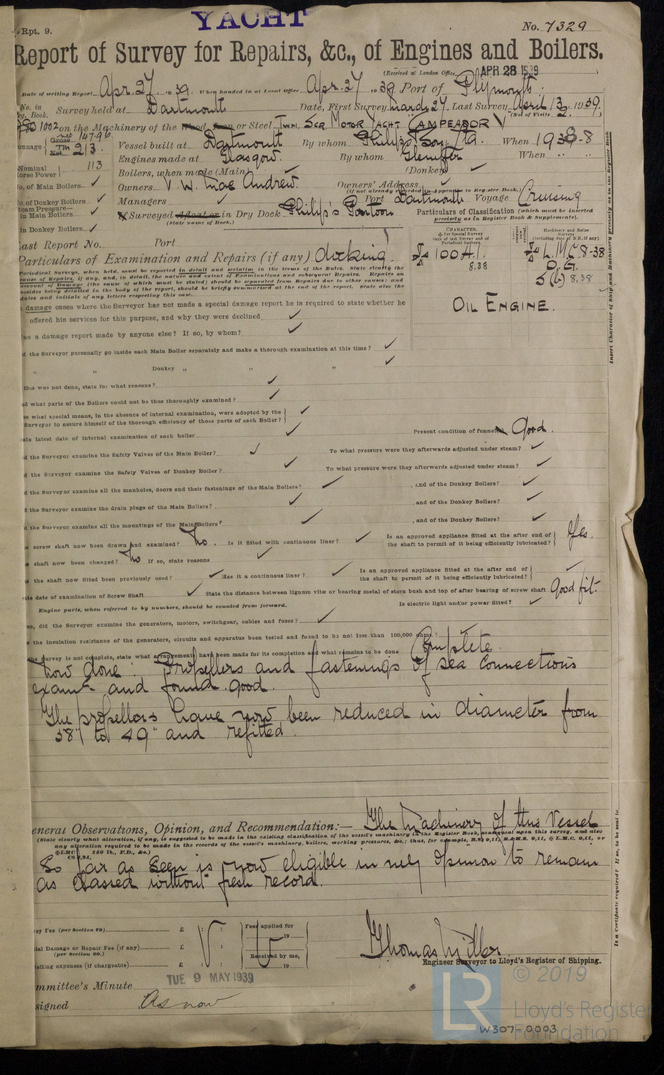 YACHT
Rpt. 9. No. 7329
Report of Survey for Repairs, &c., of Engines and Boilers.
(Received at London Office APR 28 1939
Date of writing Report Apr. 27 1939 When handed in at Local Office Apr. 27 1939 Port of Plymouth
No. in Survey held at Dartmouth Date, First Survey March 27 Last Survey April 13 1939
on the Machinery of the Wood, Iron or Steel Twn. Scr Motor Yacht CAMPEADOR V
Vessel built at Dartmouth By whom Philip & Son, Ltd. When 1938-8
Engines made at Glasgow By whom Glenifer When
Nominal Horse Power 113 Boilers, when made (Main) (Donkey)
No. of Main Boilers Owners V. W. Mac Andrew. Owners' Address
(if not already recorded in Appendix to Register Book.)
No. of Donkey Boilers Managers Port Dartmouth Voyage Cruising
Surveyed Afloat or in Dry Dock Philip's Pontoon
(State name of Dock.)
Particulars of Classification (which must be inserted precisely as in Register Book & Supplements).
in Main Boilers
in Donkey Boilers
Last Report No. Port
Particulars of Examination and Repairs (if any) docking.
100 A.1. L.M.C. 8-38
8,38 O.G.
8,38
OIL ENGINE.
damage cases where the Surveyor has not made a special damage report he is required to state whether he
offered his services for this purpose, and why they were declined
a damage report made by anyone else? If so, by whom?
the Surveyor personally go inside each Main Boiler separately and make a thorough examination at this time?
" " Donkey " " "
this was not done, state for what reasons?
what parts of the Boilers could not be thus thoroughly examined?
what special means, in the absence of internal examination, were adopted by the
Surveyor to assure himself of the thorough efficiency of those parts of each Boiler?
latest date of internal examination of each boiler Present condition of funnel Good.
the Surveyor examine the Safety Valves of the Main Boiler? To what pressure were they afterwards adjusted under steam?
the Surveyor examine the Safety Valves of Donkey Boiler? To what pressure were they afterwards adjusted under steam?
the Surveyor examine all the manholes, doors and their fastenings of the Main Boilers? and of the Donkey Boilers?
the Surveyor examine the drain plugs of the Main Boilers? and of the Donkey Boilers?
the Surveyor examine all the mountings of the Main Boilers? and of the Donkey Boilers?
screw shaft now been drawn and examined? No. Is it fitted with continuous liner? Is an approved appliance fitted at the after end of the shaft to permit of it being efficiently lubricated? Yes.
shaft now been changed? No If so, state reasons
the shaft now fitted been previously used? Has it a continuous liner? Is an approved appliance fitted at the after end of the shaft to permit of it being efficiently lubricated?
date of examination of Screw Shaft State the distance between lignum vitæ or bearing metal of stern bush and top of after bearing of screw shaft Good fit.
Engine parts, when referred to by numbers, should be counted from forward. Is electric light and/or power fitted?
so, did the Surveyor examine the generators, motors, switchgear, cables and fuses?
the insulation resistance of the generators, circuits and apparatus been tested and found to be not less than 100,000 ohms?
the Survey is not complete, state what arrangements have been made for its completion and what remains to be done Complete.
Now done. Propellers and fastenings of sea connections
exam. and found good.
The propellors have now been reduced in diameter from
58" to 49" and refitted.
General Observations, Opinion, and Recommendation:— The Machinery of this Vessel
(State clearly what alteration, if any, is suggested to be made in the existing classification of the vessel's machinery in the Register Book, consequent upon this survey, and also
any alteration required to be made in the records of the vessel's machinery, boilers, working pressures, &c.;
so far as seen is now eligible in my opinion to remain
as classed without fresh record.
Survey Fee (per Section 29) £ Fees applied for
Special Damage or Repair Fee (if any) £
(per Section 29.) Received by me,
Travelling expenses (if chargeable) £
Thomas Miller.
Engineer Surveyor to Lloyd's Register of Shipping.
TUE 9 MAY 1939
Committee's Minute
Assigned As now
© 2019
LR Lloyd's Register
Foundation
W307-0003